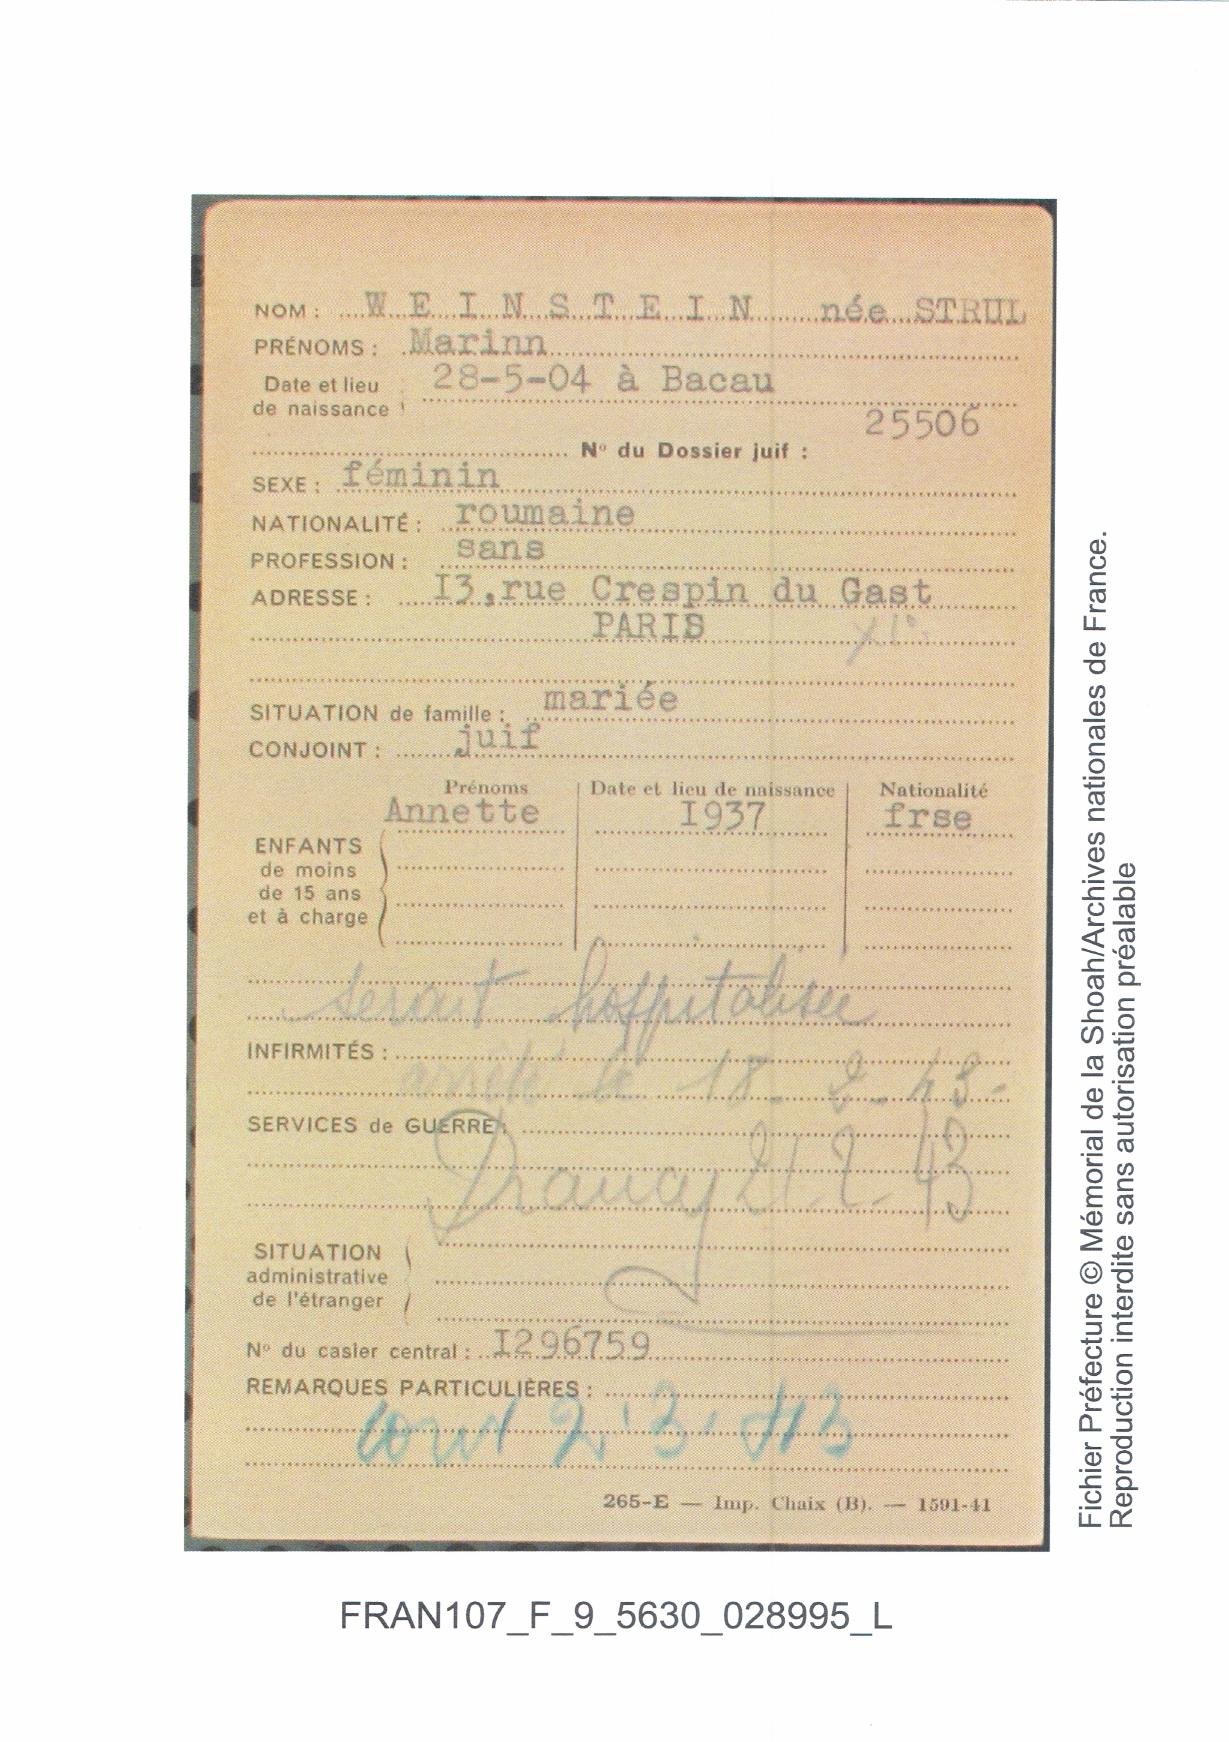 NOM : WEINSTEIN née STRUL
PRÉNOMS : Marinn
Date et lieu de naissance 28-5-04 à Bacau
25506
N° du Dossier juif :
SEXE : féminin
NATIONALITÉ : roumaine
PROFESSION : sans
ADRESSE : I3,rue Crespin du Gast
PARIS XI°
SITUATION de famille : mariée
CONJOINT : juif
Prénoms Date et lieu de naissance Nationalité
Annette I937 frse
ENFANTS
de moins
de 15 ans
et à charge
serait hospitalisée
INFIRMITÉS :
arrêté le 18-2-43-
SERVICES de GUERRE :
Drancy 21-2-43
SITUATION
administrative
de l'étranger
N° du casier central : I296759
REMARQUES PARTICULIÈRES :
2.3.43
265-E — Imp. Chaix (B). — 1591-41
Fichier Préfecture © Mémorial de la Shoah/Archives nationales de France.
Reproduction interdite sans autorisation préalable
FRAN107_F_9_5630_028995_L